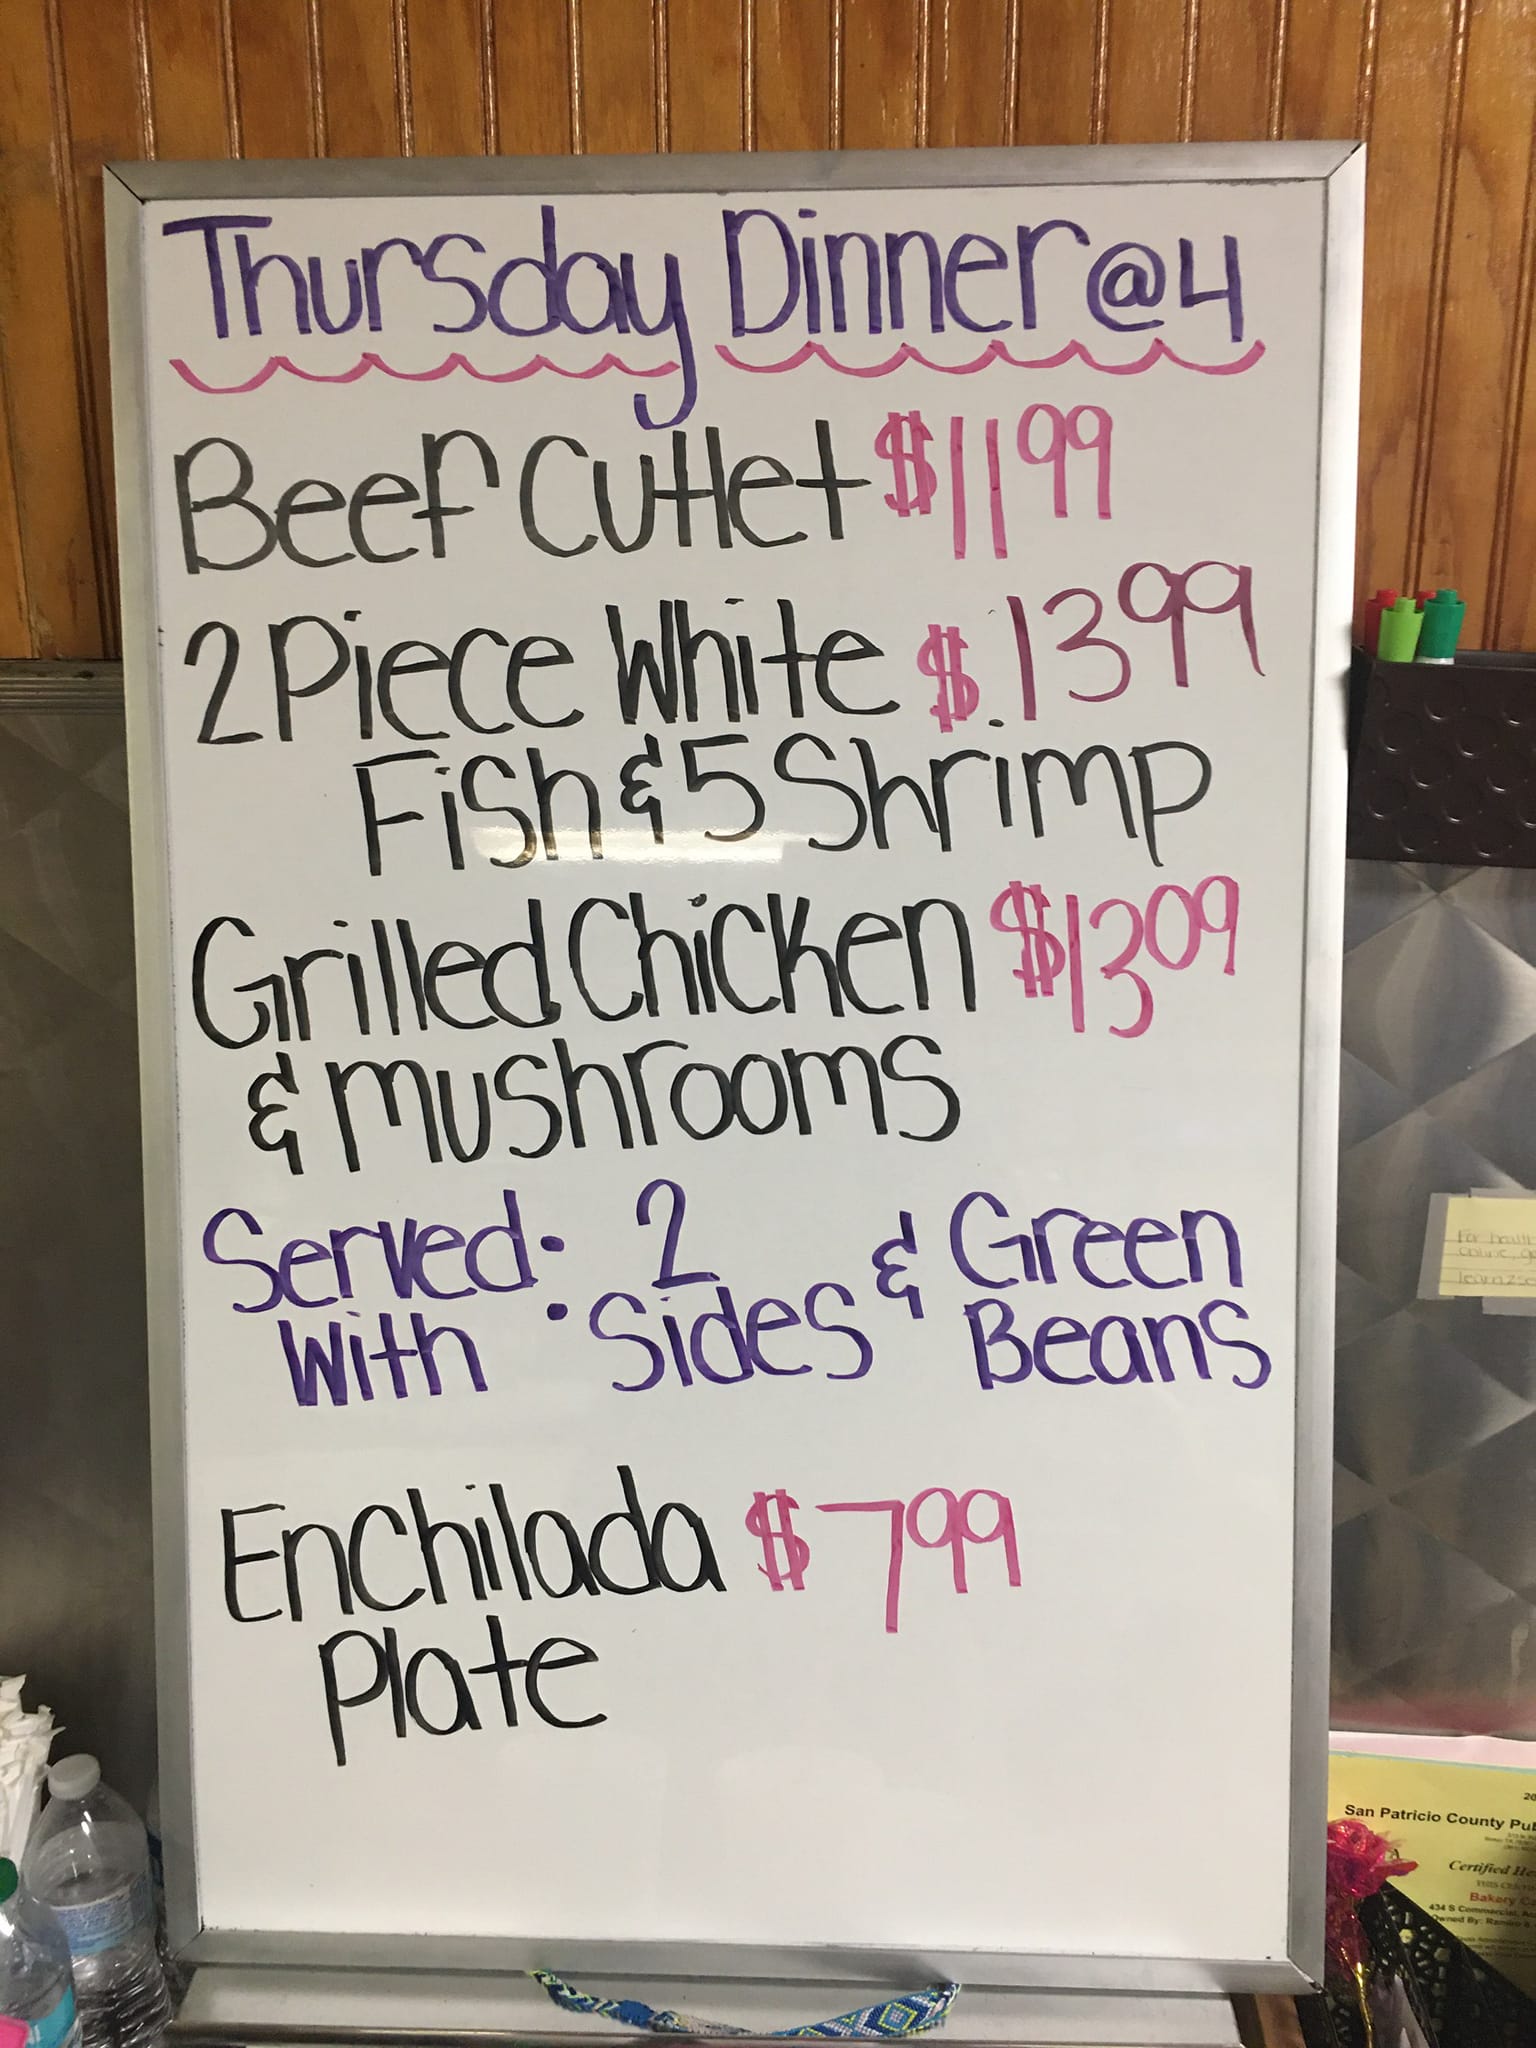 Thursday Dinner @ 4
Beef Cutlet $11.99
2 Piece White $13.99
Fish & 5 Shrimp
Grilled Chicken $13.09
& Mushrooms
Served: 2 & Green
With : Sides Beans
Enchilada $7.99
Plate
For health
online, go
San Patricio County Pub
Certified He
Bakery Ca
434 S Commercial, A
Owned By: Ramiro